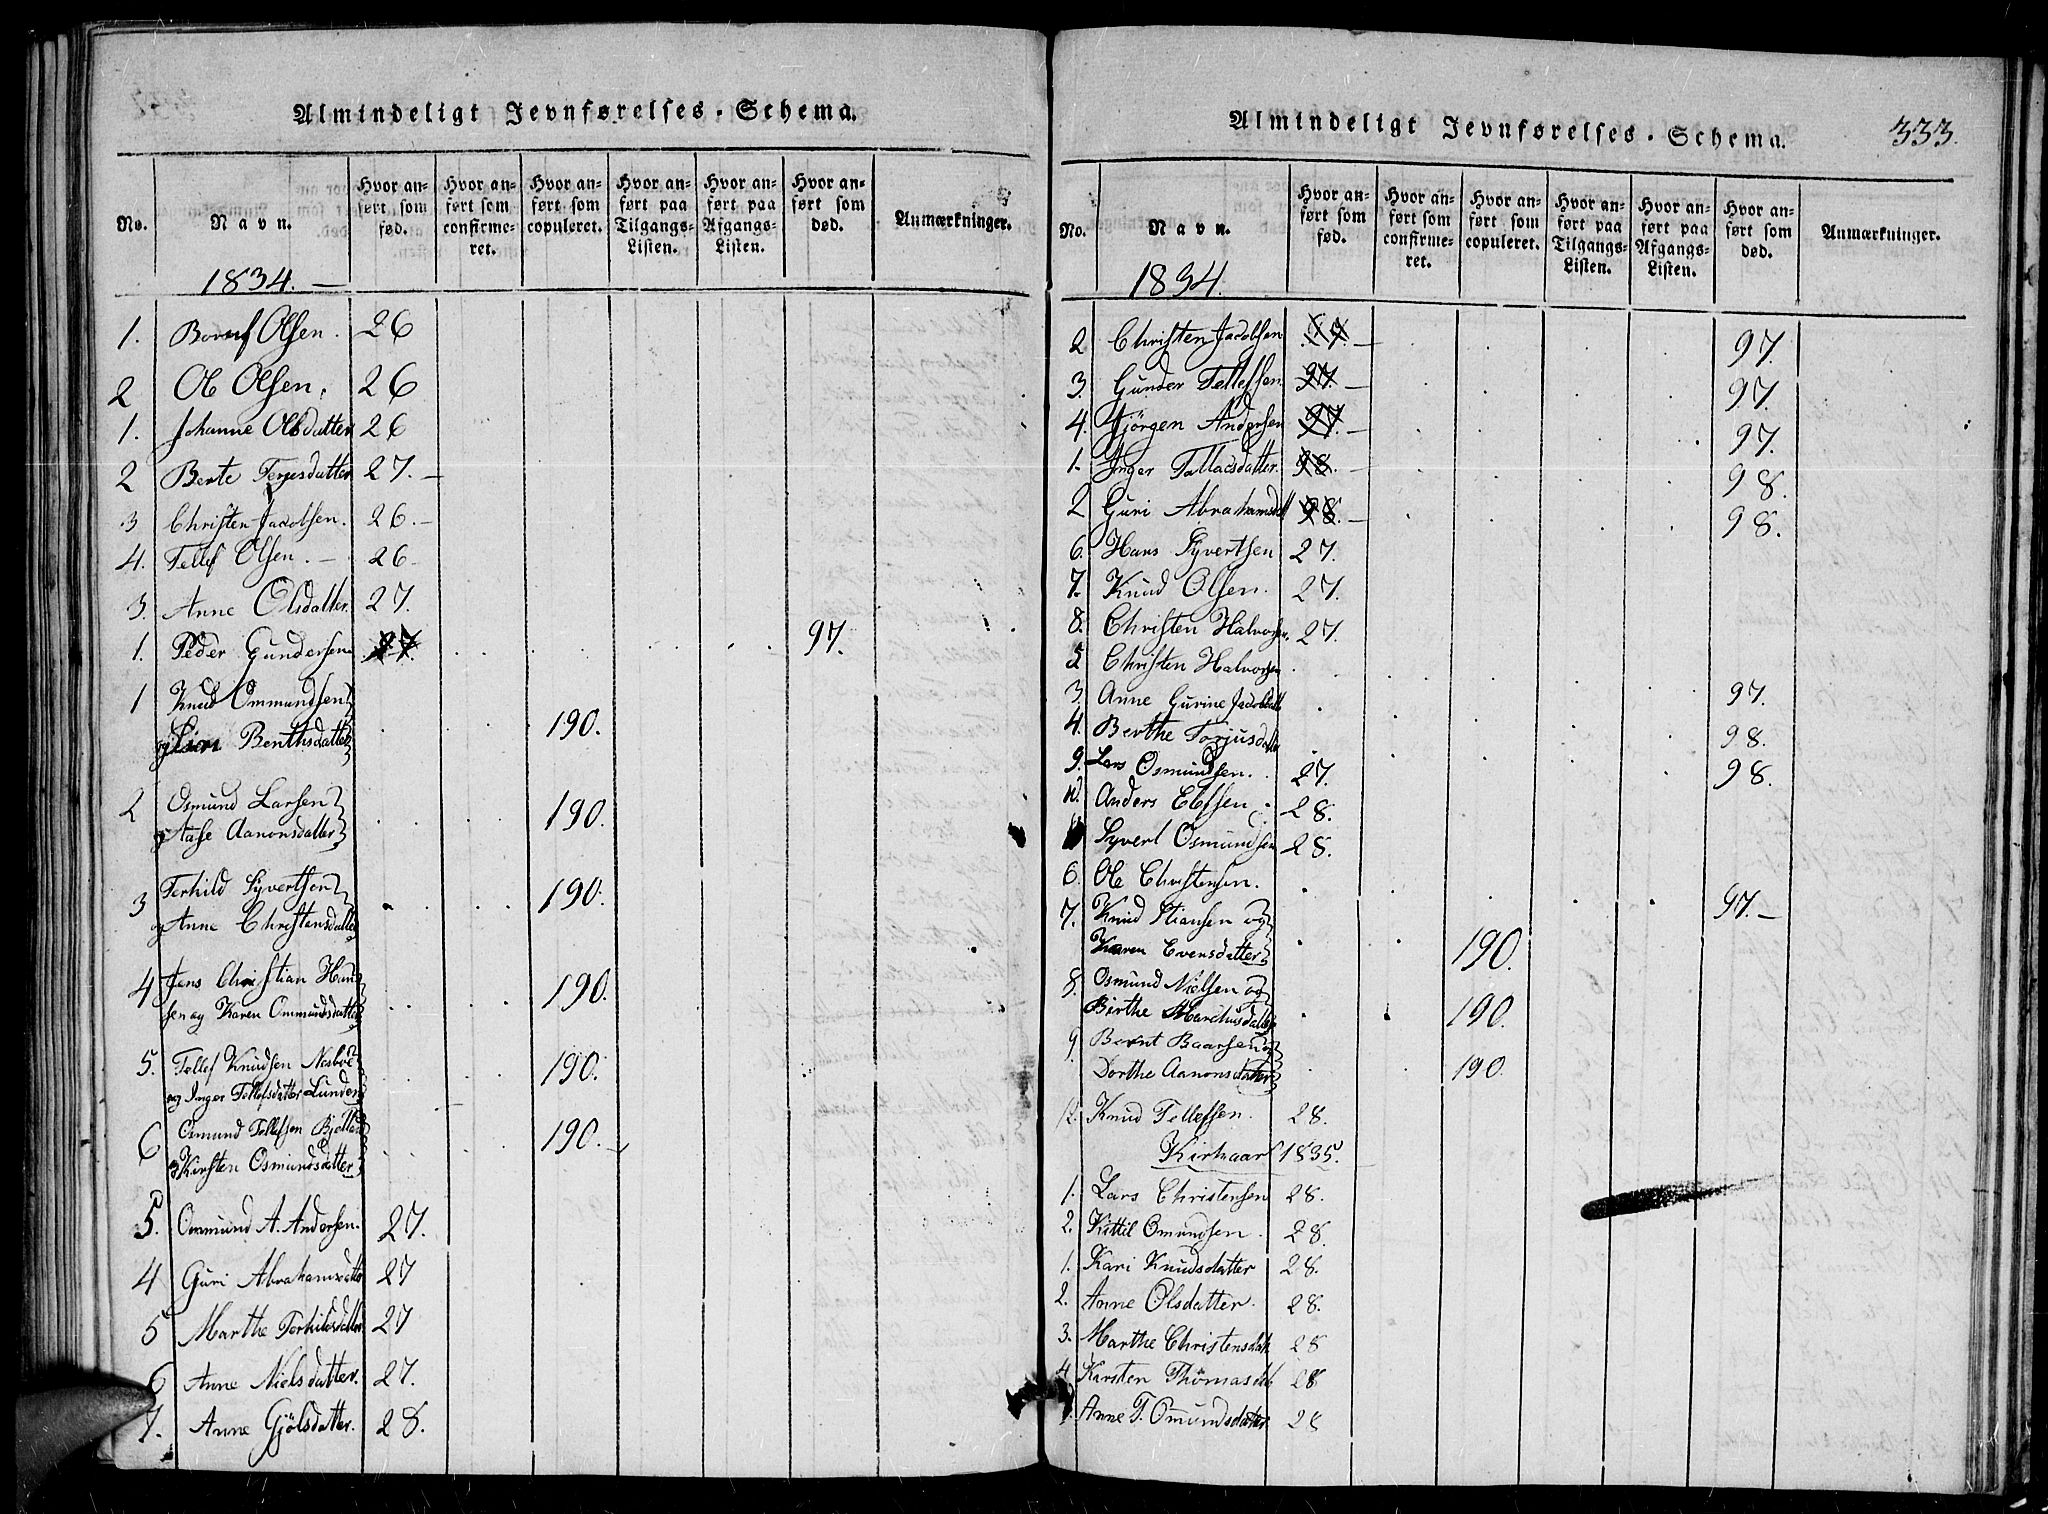 Almindeligt Jevnførelses-Schema.
No.
Navn.
Hvor an-
ført som
fød.
Hvor an-
ført som
confirme-
ret.
Hvor an-
ført som
copuleret.
Hvor an-
ført paa
Tilgangs-
Listen.
Hvor an-
ført paa
Afgangs-
Listen.
Hvor an-
ført som
død.
Anmærkninger.
1834. —
1. Olsen. 26
2 Ole Olsen. 26
1. Johanne Olsdatter 26
2 Berte Terjesdatter 27. —
3 Christen Jacobsen. 26. —
4. Tellef Olsen. — 26
3. Anne Olsdatter. 27.
1. Peder Gundersen 97.
1 Knud Ommundsen
og Siri Benthsdatter 190.
2 Osmund Larsen
og Aase Aanonsdatter 190.
3 Terkild Syvertsen
og Anne Christensdatter 190.
4 Jens Christian Han-
sen og Karen Ommundsdatter 190.
5. Tellef Knudsen
og Inger Tellefsdatter Lunden 190.
6 Osmund Tellefsen
og Kirsten Osmundsdatter 190. —
5. Ommund A. Andersen. 27.
4 Guri Abrahamsdatter 27
5 Marthe Terkildsdatter 27
6 Anne Nielsdatter. 27.
7. Anne Gjölsdatter. 28.
Almindeligt Jevnførelses-Schema.
333.
No.
Navn.
Hvor an-
ført som
fød.
Hvor an-
ført som
confirme-
ret.
Hvor an-
ført som
copuleret.
Hvor an-
ført paa
Tilgangs-
Listen.
Hvor an-
ført paa
Afgangs-
Listen.
Hvor an-
ført som
død.
Anmærkninger.
1834.
2 Christen Jacobsen 97. — 97.
3. Gunder Tellefsen 97. — 97.
4. Jörgen Andersen 97. — 97.
1. Inger Tallacsdatter. 98. — 98.
2 Guri Abrahamsdatt 98. — 98.
6. Hans Syvertsen 27.
7. Knud Olsen. 27.
8. Christen Halvorsen. 27.
5 Christen Halvorsen 97.
3. Anne Gurine Jacobsdatt 98.
4. Berthe Torjusdatter 98.
9. Lars Osmundsen. 27.
10. Anders Ellefsen. 28.
Syvert Osmundsen 28.
6. Ole Christensen. 97. —
7. Knud Stiansen og
Karen Evensdatter 190.
8. Osmund Nielsen og
Birthe Marchusdatter 190.
9 Bernt Baarsen og
Dorthe Aanonsdatter 190.
12. Knud Tellefsen. 28.
Kirkaar 1835.
1. Lars Christensen 28.
2. Kittil Omundsen. 28.
1. Kari Knudsdatter 28.
2. Anne Olsdatter. 28.
3. Marthe Christensdatt 28
4 Kirsten Thomasdtt 28
Anne T. Omundsdatter 28